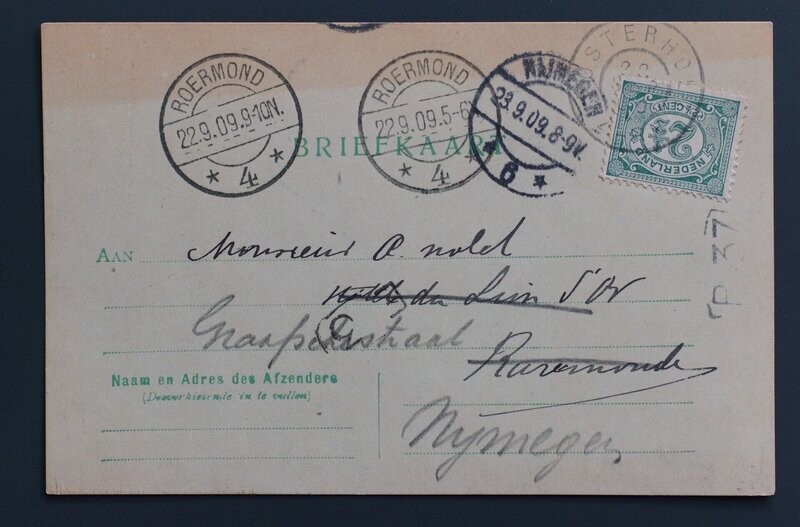 ROERMOND
22.9.09.9-10N.
4
ROERMOND
22.9.09.5-6
4
NIJMEGEN
23.9.09.8-9V.
6
STERHO
2½
CENTS
NEDERLAND
BRIEFKAART
AAN
Monsieur A. nold
du Lion d'Or
straat
Ruremonde
Nijmegen
Naam en Adres des Afzenders
(Desverkiezende in te vullen)
P 37